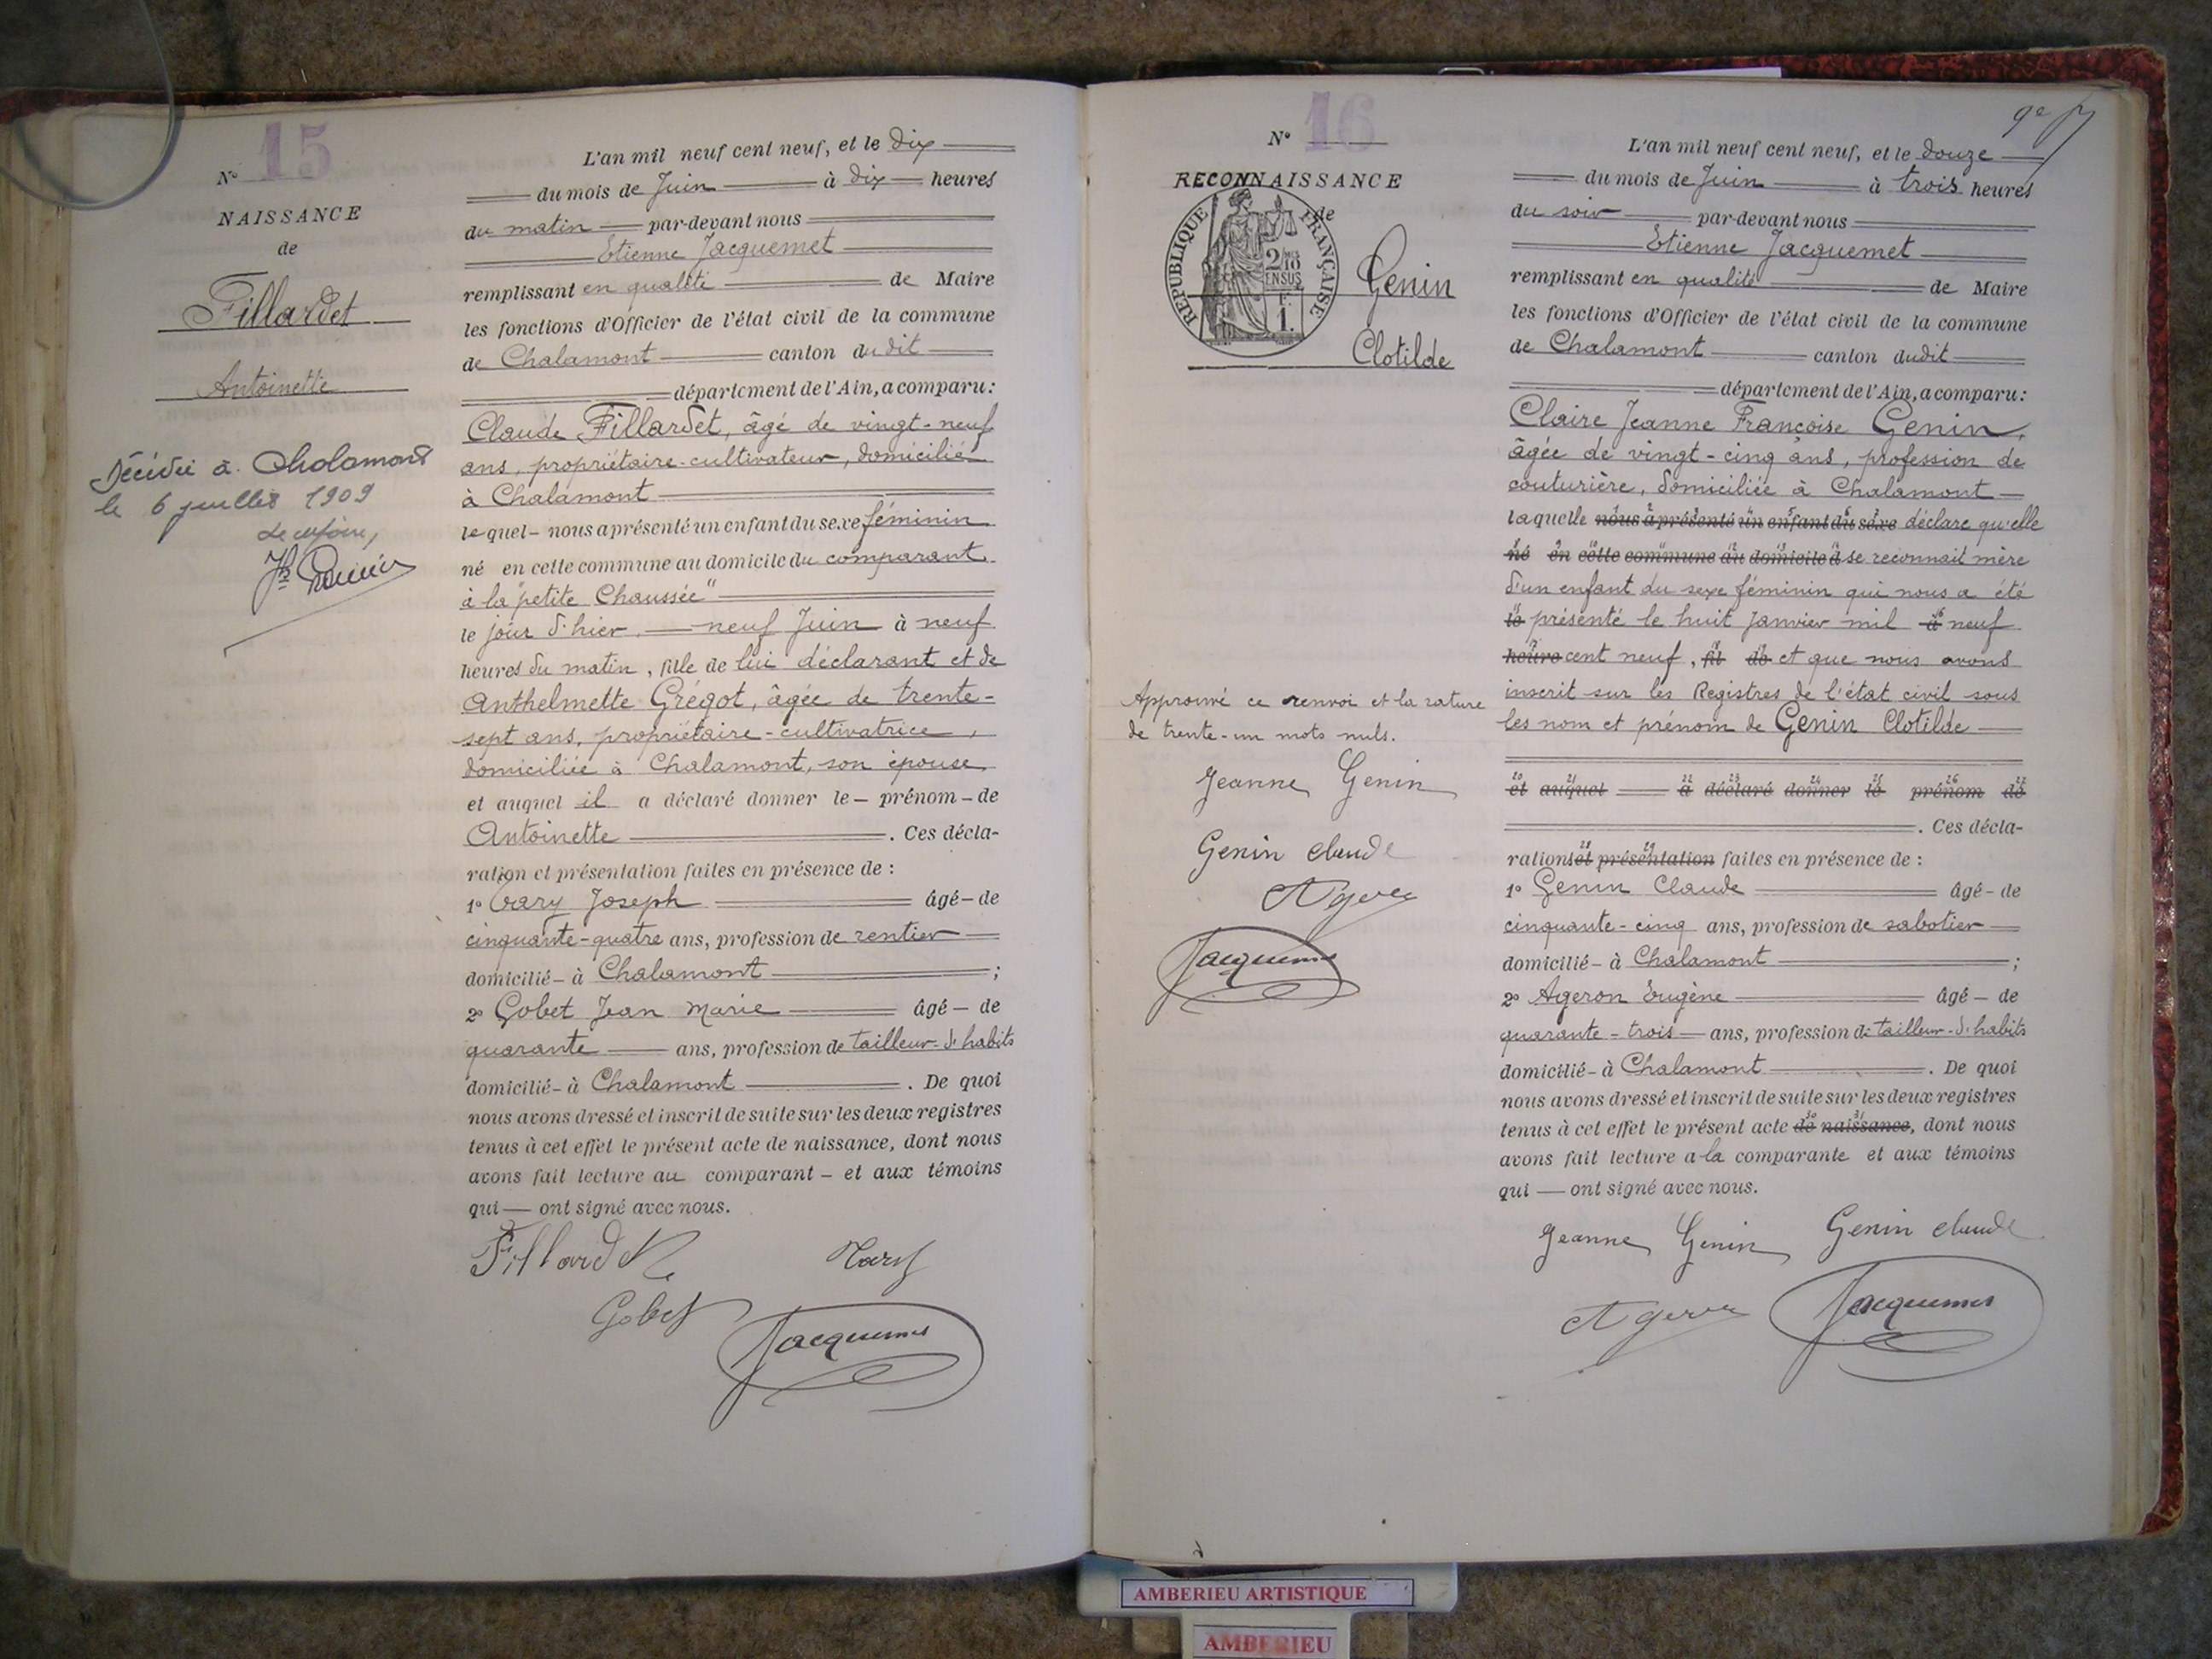 N° 15
NAISSANCE
de
Fillardet
Antoinette
Décédée à Chalamont
le 6 juillet 1909
L'an mil neuf cent neuf, et le dix
du mois de Juin à dix heures
du matin par-devant nous
Etienne Jacquemet
remplissant en qualité de Maire
les fonctions d'Officier de l'état civil de la commune
de Chalamont canton dudit
département de l'Ain, a comparu :
Claude Fillardet, âgé de vingt-neuf
ans, propriétaire-cultivateur, domicilié
à Chalamont
lequel nous a présenté un enfant du sexe féminin
né en cette commune au domicile du comparant
à la "petite Chaussée"
le jour d'hier neuf Juin à neuf
heures du matin, fille de lui déclarant et de
Anthelmette Grégot, âgée de trente-
sept ans, propriétaire-cultivatrice,
domiciliée à Chalamont, son épouse,
et auquel il a déclaré donner le prénom de
Antoinette . Ces décla-
ration et présentation faites en présence de :
1° Joseph âgé de
cinquante-quatre ans, profession de rentier
domicilié à Chalamont ;
2° Gobet Jean Marie âgé de
quarante ans, profession de tailleur-d'habits
domicilié à Chalamont . De quoi
nous avons dressé et inscrit de suite sur les deux registres
tenus à cet effet le présent acte de naissance, dont nous
avons fait lecture au comparant et aux témoins
qui ont signé avec nous.
Fillardet
Gobet Jacquemet
N° 16
RECONNAISSANCE
de
REPUBLIQUE FRANÇAISE
2/10 EN SUS
1 F.
Genin
Clotilde
Approuvé ce renvoi et la rature
de trente-un mots nuls.
Jeanne Genin
Genin Claude
Ageron
Jacquemet
L'an mil neuf cent neuf, et le douze
du mois de Juin à trois heures
du soir par-devant nous
Etienne Jacquemet
remplissant en qualité de Maire
les fonctions d'Officier de l'état civil de la commune
de Chalamont canton dudit
département de l'Ain, a comparu :
Claire Jeanne Françoise Genin,
âgée de vingt-cinq ans, profession de
couturière, domiciliée à Chalamont
laquelle nous a présenté un enfant du sexe déclare qu'elle
né en cette commune au domicile d se reconnait mère
d'un enfant du sexe féminin qui nous a été
le présenté le huit Janvier mil à neuf
heure cent neuf, fil de et que nous avons
inscrit sur les Registres de l'état civil sous
les nom et prénom de Genin Clotilde
et auquel a déclaré donner le prénom de
. Ces décla-
rations et présentation faites en présence de :
1° Genin Claude âgé de
cinquante-cinq ans, profession de sabotier
domicilié à Chalamont ;
2° Ageron Eugène âgé de
quarante-trois ans, profession de tailleur-d'habits
domicilié à Chalamont . De quoi
nous avons dressé et inscrit de suite sur les deux registres
tenus à cet effet le présent acte de naissance, dont nous
avons fait lecture a la comparante et aux témoins
qui ont signé avec nous.
Jeanne Genin Genin Claude
Ageron Jacquemet
AMBERIEU ARTISTIQUE
AMBERIEU